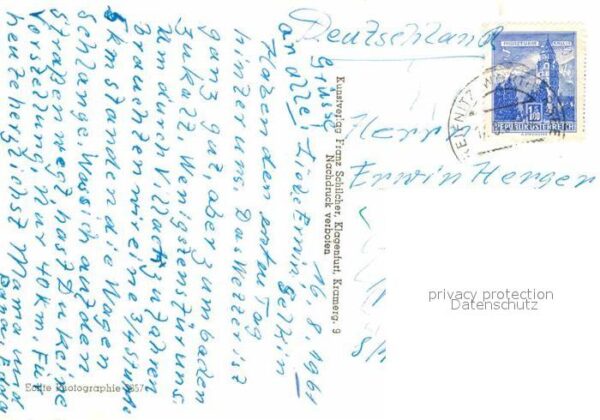 Deutschland
Herrn
Erwin Herger
REPUBLIK ÖSTERREICH
1.50
Kunstverlag Franz Schilcher, Klagenfurt, Kramerg. 9
Nachdruck verboten
16.8.1961
Grüsse
an alle!
Haben den ersten Tag
hinter uns. Das Wetter ist
ganz gut, aber zum baden
zu kalt. Wenigstens für uns.
Um durch Villach zu fahren
wir eine 3/4 Stunde
5 km standen die Wagen
Schlange. Was ich auf den
hast Du keine
Vorstellung, nur 40 km. Für
heute herzlichst Mama und
Echte Photographie
privacy protection
Datenschutz